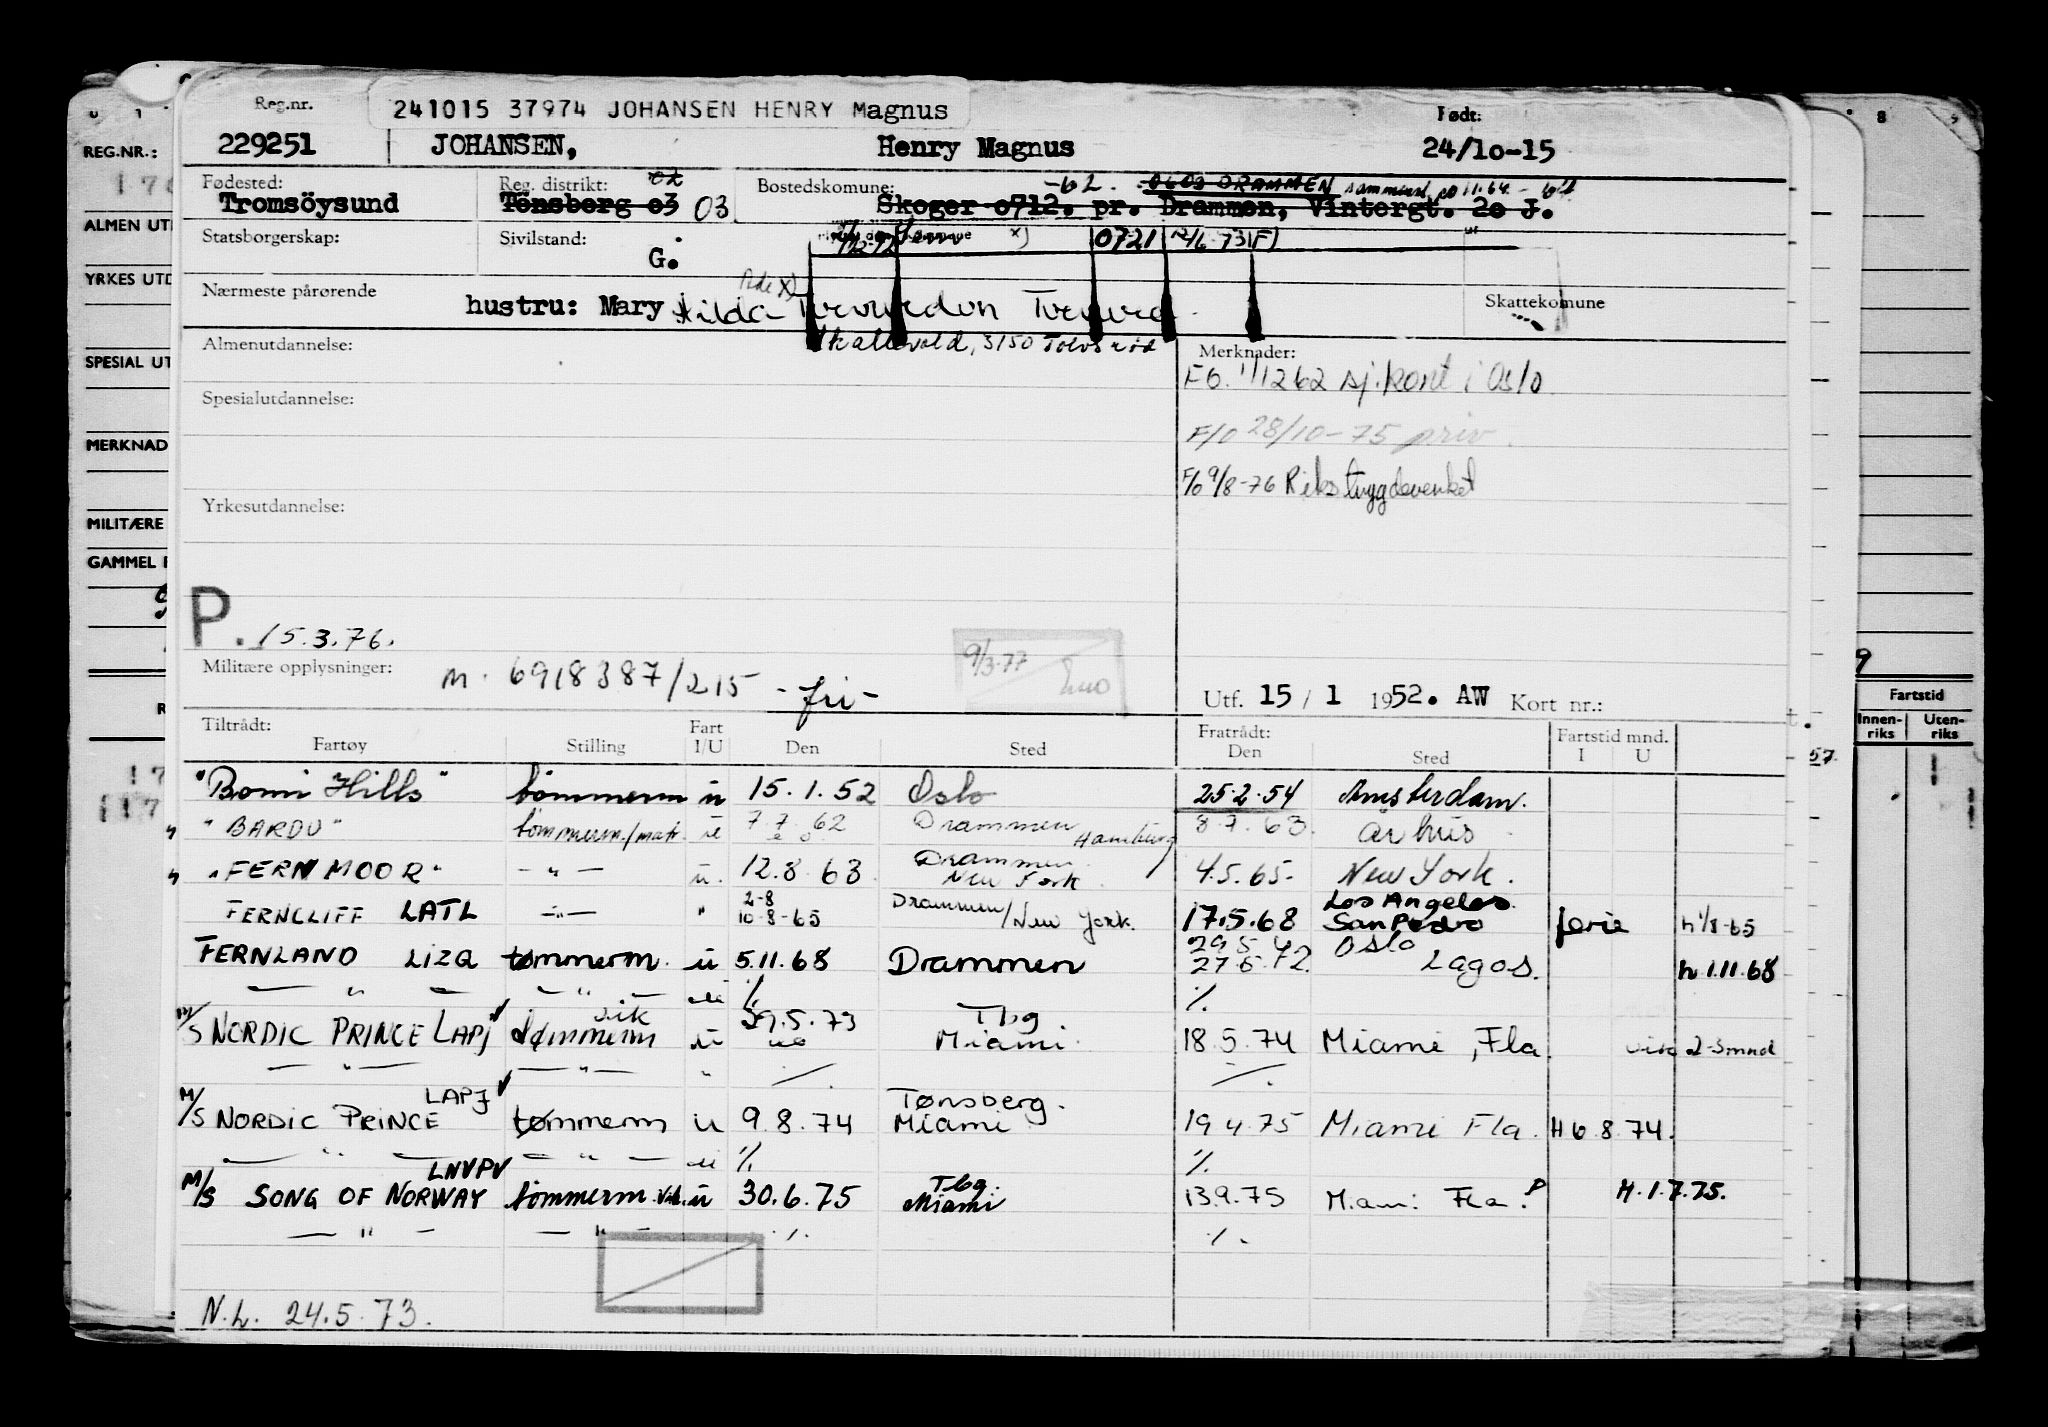 Reg.nr. 241015 37974 JOHANSEN HENRY Magnus Født:
229251 JOHANSEN, Henry Magnus 24/10-15
REG.NR.:
Fødested: Reg. distrikt: Bostedskomune: -62. 0602 DRAMMEN
Tromsöysund Tönsberg 03 03 Skoger 0712. pr. Drammen, Vintergt. 20 J.
ALMEN UT
Statsborgerskap: Sivilstand: 0721 12/6-73 (F)
G.
YRKES UTD
Nærmeste pårørende hustru: Mary Hilda Skattekomune
Skallevold, 3150 Tolvsrød
Almenutdannelse: Merknader:
SPESIAL UT
F6. 1/1262 sj.kont i Oslo
Spesialutdannelse:
F/0 28/10-75 priv.
MERKNAD
F/0 9/8-76 Rikstrygdeverket
Yrkesutdannelse:
MILITÆRE
GAMMEL
P. 15.3.76.
9/3-77
Militære opplysninger: M. 6918387/215 -fri-
Utf. 15 / 1 1952. AW Kort nr.:
Fartstid
Innen-riks Uten-riks
Tiltrådt: Fart Fratrådt: Fartstid mnd.
Fartøy Stilling I/U Den Sted Den Sted I U
57.
"Bomi Hills" tømmerm u 15.1.52 Oslo 25.2.54 Amsterdam.
"BARDU" tømmerm/matr. u 7.7.62 Drammen Hamburg 8.7.63. Århus
"FERNMOOR" -"- u. 12.8.63 Drammen New York 4.5.65. New York.
FERNCLIFF LATL -"- " 2-8 10-8-65 Drammen/New York. 17.5.68 Los Angeles. San Pedro ferie h 1/8-65
FERNLAND LIZQ tømmerm. u 5.11.68 Drammen 29.5.72 27.5.72. Oslo Lagos. h 1.11.68
- " - - " - u % %
M/S NORDIC PRINCE LAPJ tømmerm vik u 29.5.73 Tbg Miami. 18.5.74 Miami, Fla. 2-3 mnd
- " - - " - " % %
M/S NORDIC PRINCE LAPJ tømmerm u 9.8.74 Tønsberg. Miami 19.4.75 Miami Fla. H 6.8.74.
- " - - " - u % %
M/S SONG OF NORWAY LNVP tømmerm. vik. u 30.6.75 Tbg. Miami 13.9.75 Miami Fla. P H.1.7.75.
- " - - " - % %
N.L. 24.5.73.